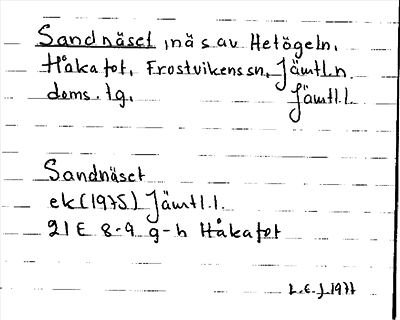 Sandnäset, näs av Hetögeln,
Håkafot, Frostvikens sn, Jämtl.n.
doms. tg. Jämtl.l.
Sandnäset
ek (1975) Jämtl.l.
21E 8-9 g-h Håkafot
L.E.J 1977